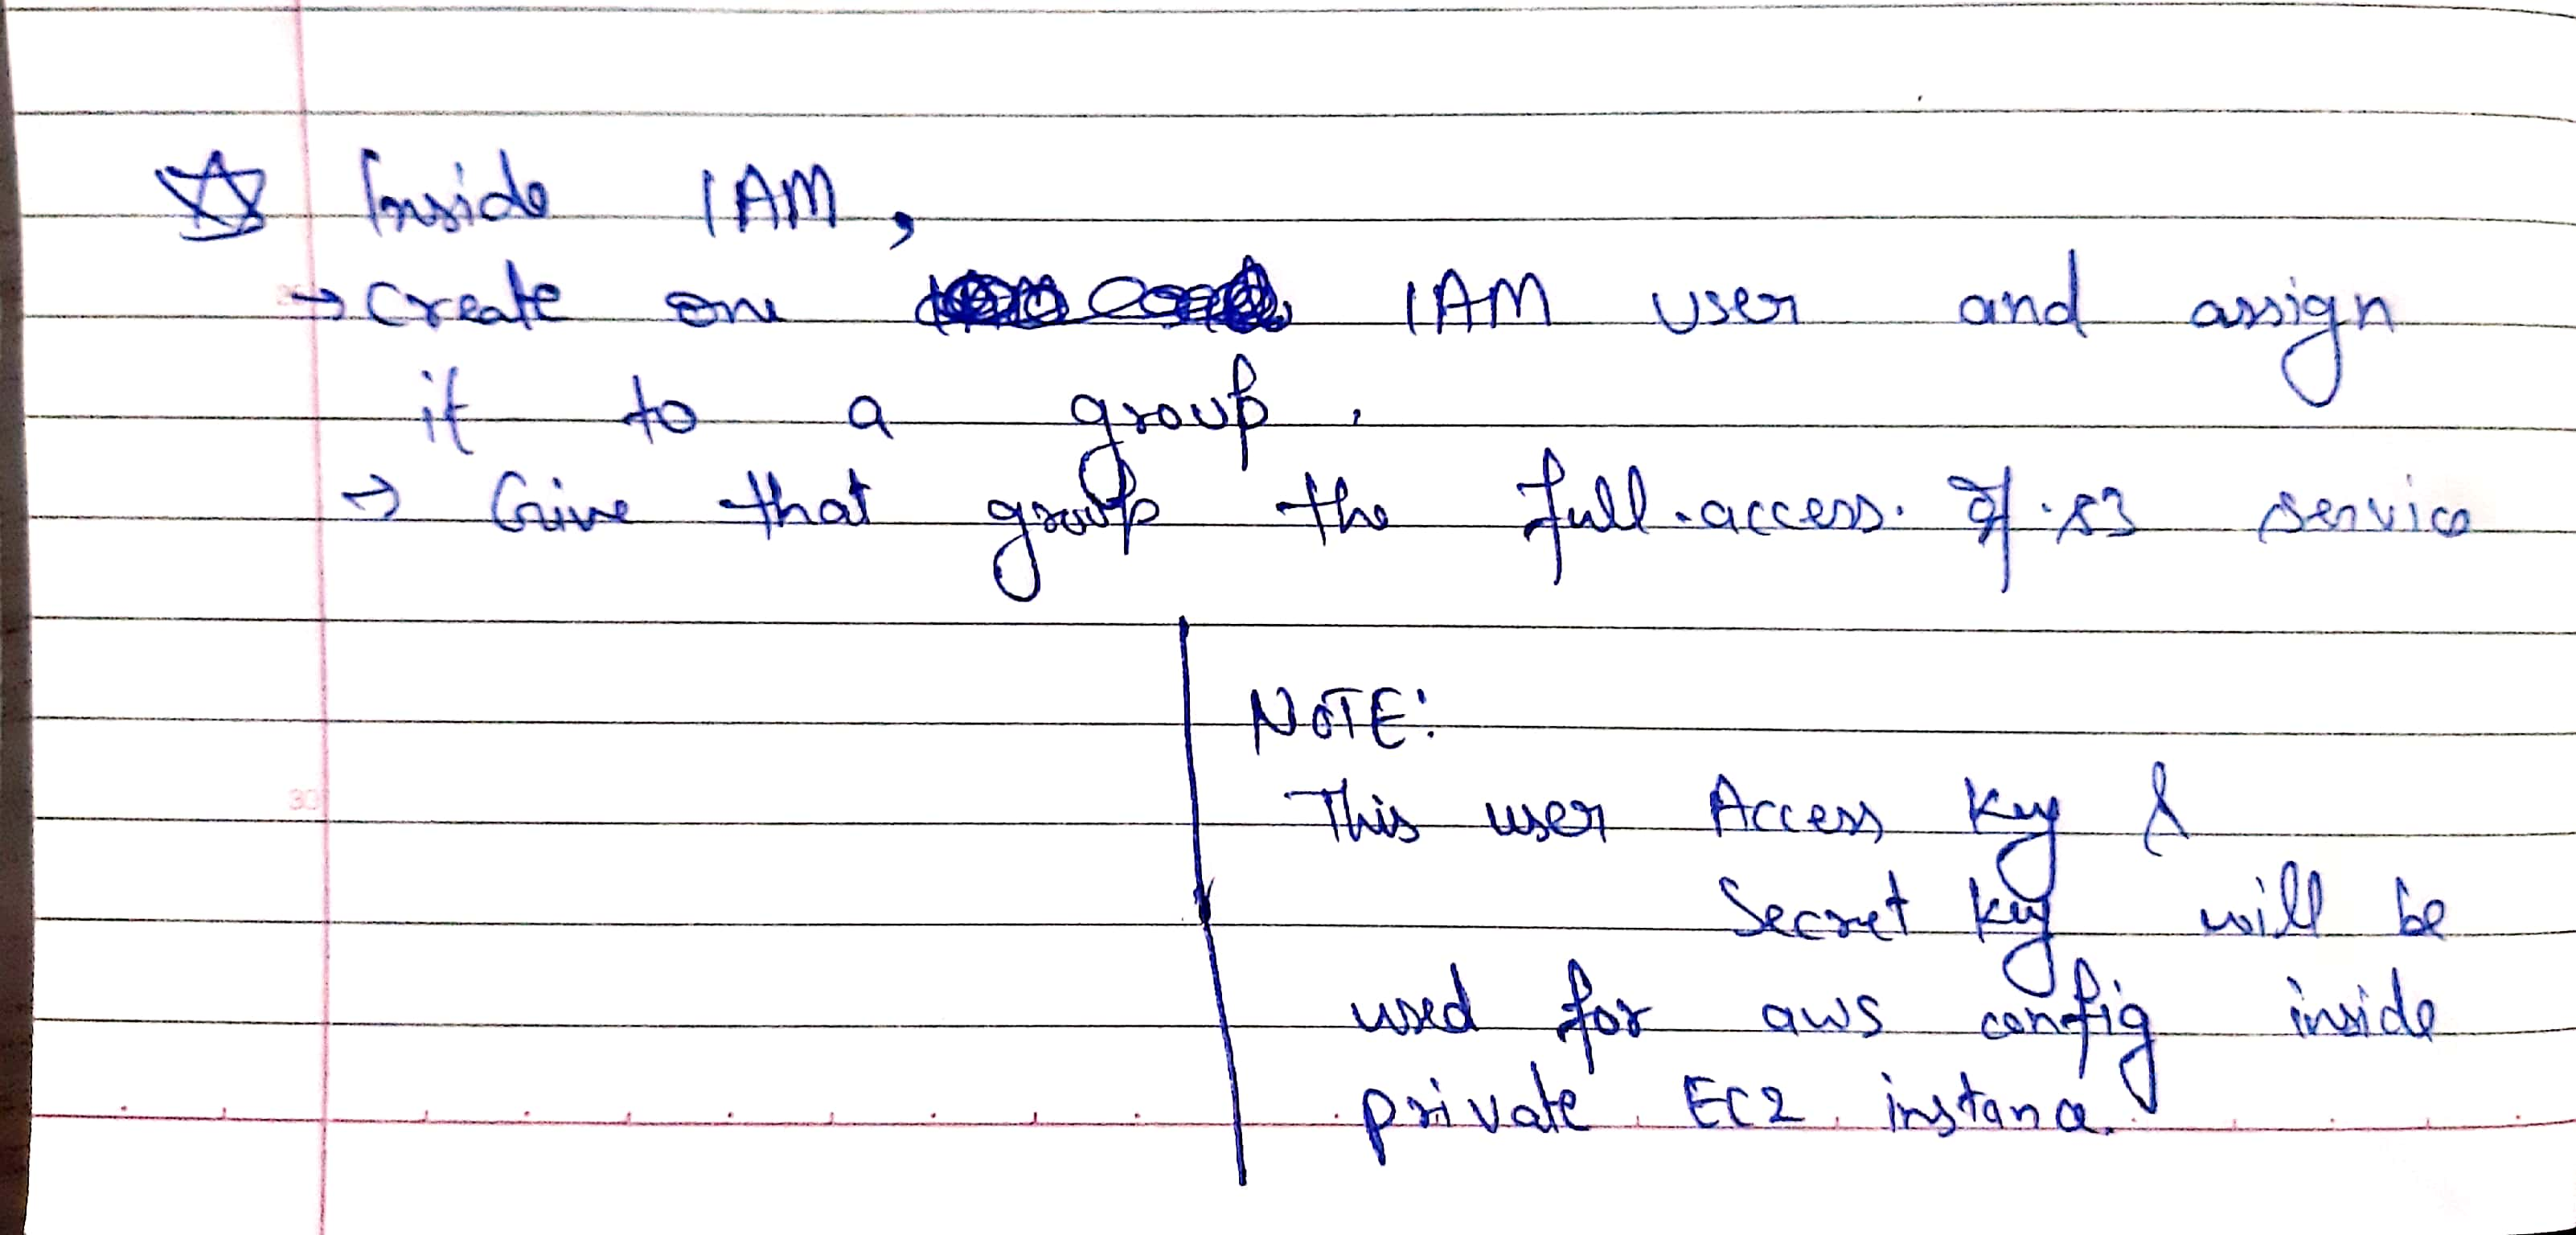 ☆ Inside IAM,
→ Create one IAM user and assign
it to a group.
→ Give that group the full access of s3 service
NOTE:
This user Access key &
Secret key will be
used for aws config inside
private EC2 instance.
30